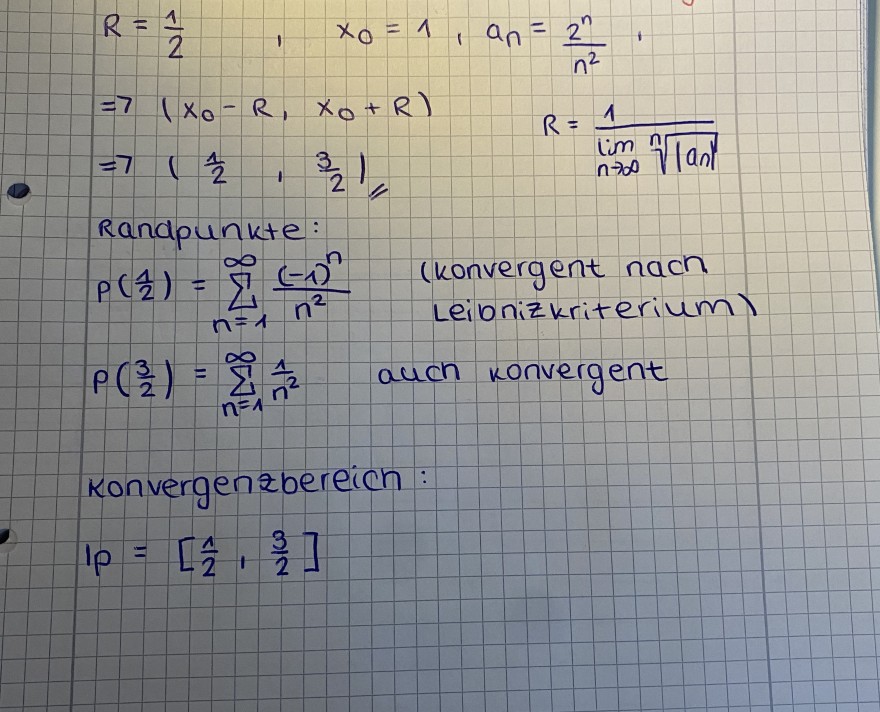 R = 1/2 , x₀ = 1 , aₙ = 2ⁿ/n² ,
=> (x₀ - R, x₀ + R)
R = 1/(lim n→∞ ⁿ√|aₙ|)
=> (1/2 , 3/2)
Randpunkte:
P(1/2) = ∑_{n=1}^{∞} (-1)ⁿ/n² (konvergent nach
Leibnizkriterium)
P(3/2) = ∑_{n=1}^{∞} 1/n² auch konvergent
Konvergenzbereich:
Ip = [1/2 , 3/2]